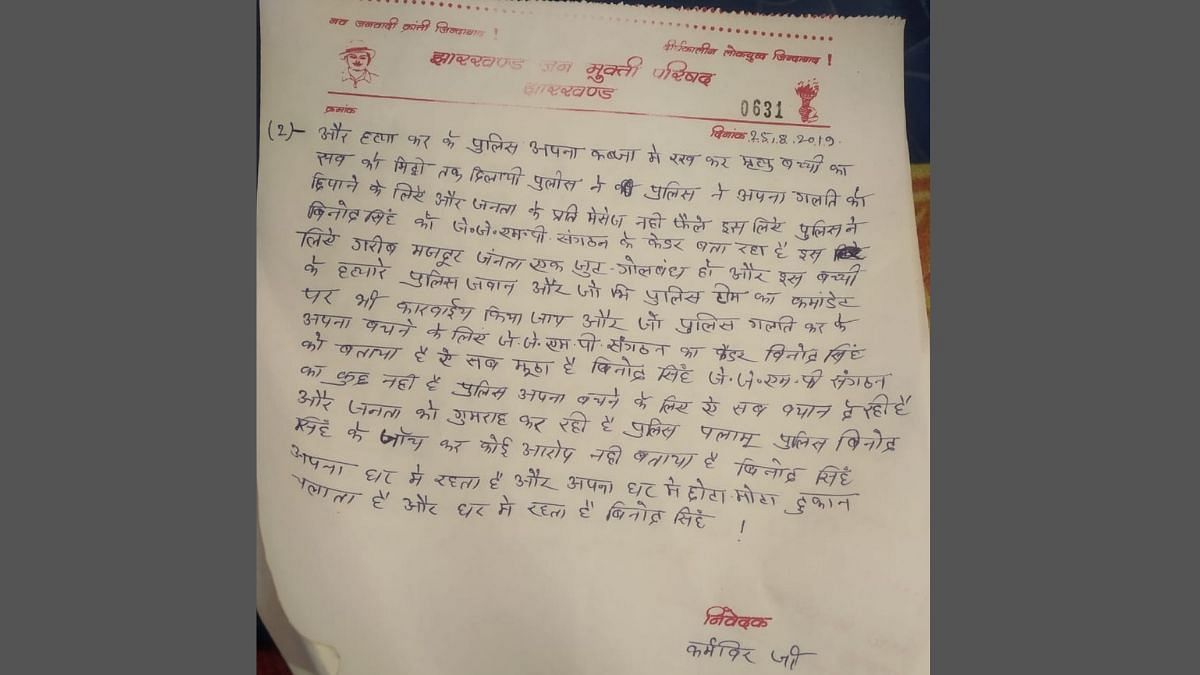 नव जनवादी क्रांती जिन्दाबाद !
दीर्घकालीन लोकयुद्ध जिन्दाबाद !
झारखण्ड जन मुक्ती परिषद
झारखण्ड
0631
क्रमांक
दिनांक 25.8.2019.
(2)- और हत्या कर के पुलिस अपना कब्जा मे रख कर मृत्यु बच्ची का
सव को मिट्टी तक दिलायी पुलीस ने पुलिस ने अपना गलति को
छिपाने के लिऐ और जनता के प्रति मेसेज नही फैले इस लिऐ पुलिस ने
बिनोद्र सिंह को जे॰जे॰एम॰पी॰ संगठन के केडर बता रहा है इस
लिऐ गरीब मजदूर जंनता एक जुट-गोलबंध हो और इस बच्ची
के हत्यारे पुलिस जवान और जो भि पुलिस टीम का कमांडेट
पर भी कारवाईय किया जाय और जो पुलिस गलति कर के
अपना बचने के लिए जे॰जे॰एम॰पी॰ संगठन का कैडर बिनोद्र सिंह
को बताया है ऐ सब झूठा है बिनोद्र सिंह जे॰जे॰एम॰पी संगठन
का कुछ नही है पुलिस अपना बचने के लिए ऐ सब बयान दे रही है
और जनता को गुमराह कर रही है पुलिस पलामू पुलिस बिनोद्र
सिंह के जाँच कर कोई आरोप नही बताया है बिनोद्र सिंह
अपना घर मे रहता है और अपना घर मे छोटा-मोटा दुकान
चलाता है और घर मे रहता है बिनोद्र सिंह !
निवेदक
कर्मविर जी